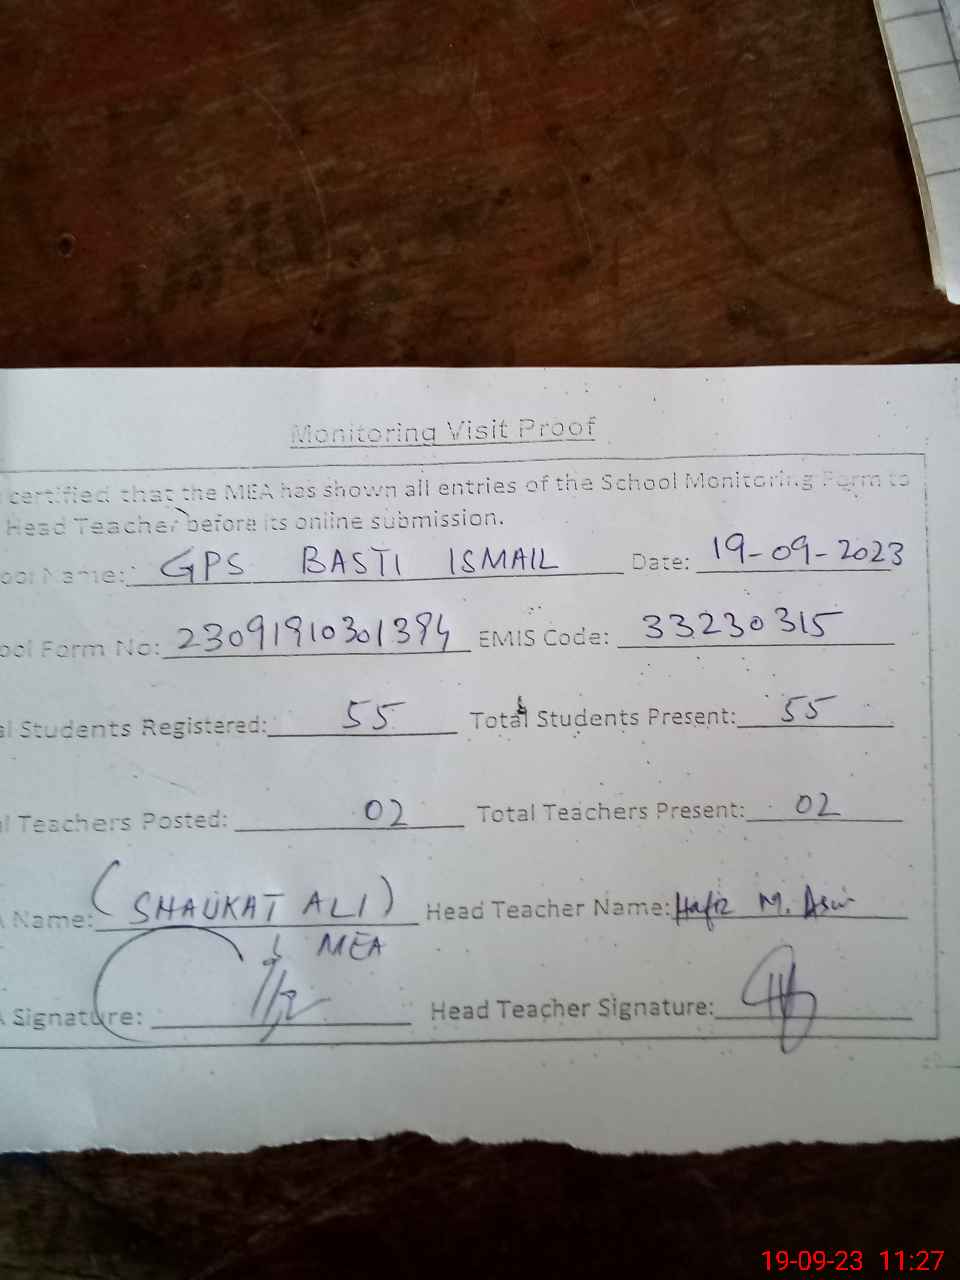 Monitoring Visit Proof
certified that the MEA has shown all entries of the School Monitoring Form to
Head Teacher before its online submission.
ool Name: GPS BASTI ISMAIL Date: 19-09-2023
ool Form No: 23091910301394 EMIS Code: 33230315
al Students Registered: 55 Total Students Present: 55
l Teachers Posted: 02 Total Teachers Present: 02
A Name: (SHAUKAT ALI) Head Teacher Name: Hafiz M.
MEA
A Signature: Head Teacher Signature:
19-09-23 11:27